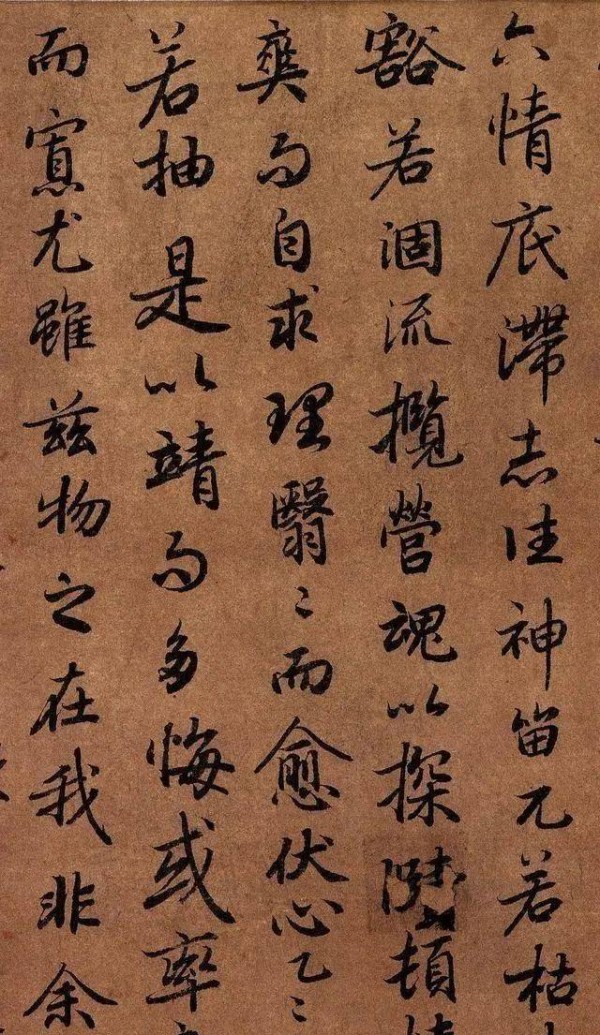 六情底滞志往神留兀若枯
豁若涸流揽營魂以探賾頓
爽而自求理翳〻而愈伏心乙〻
若抽是以靖而多悔或率
而寡尤雖兹物之在我非余